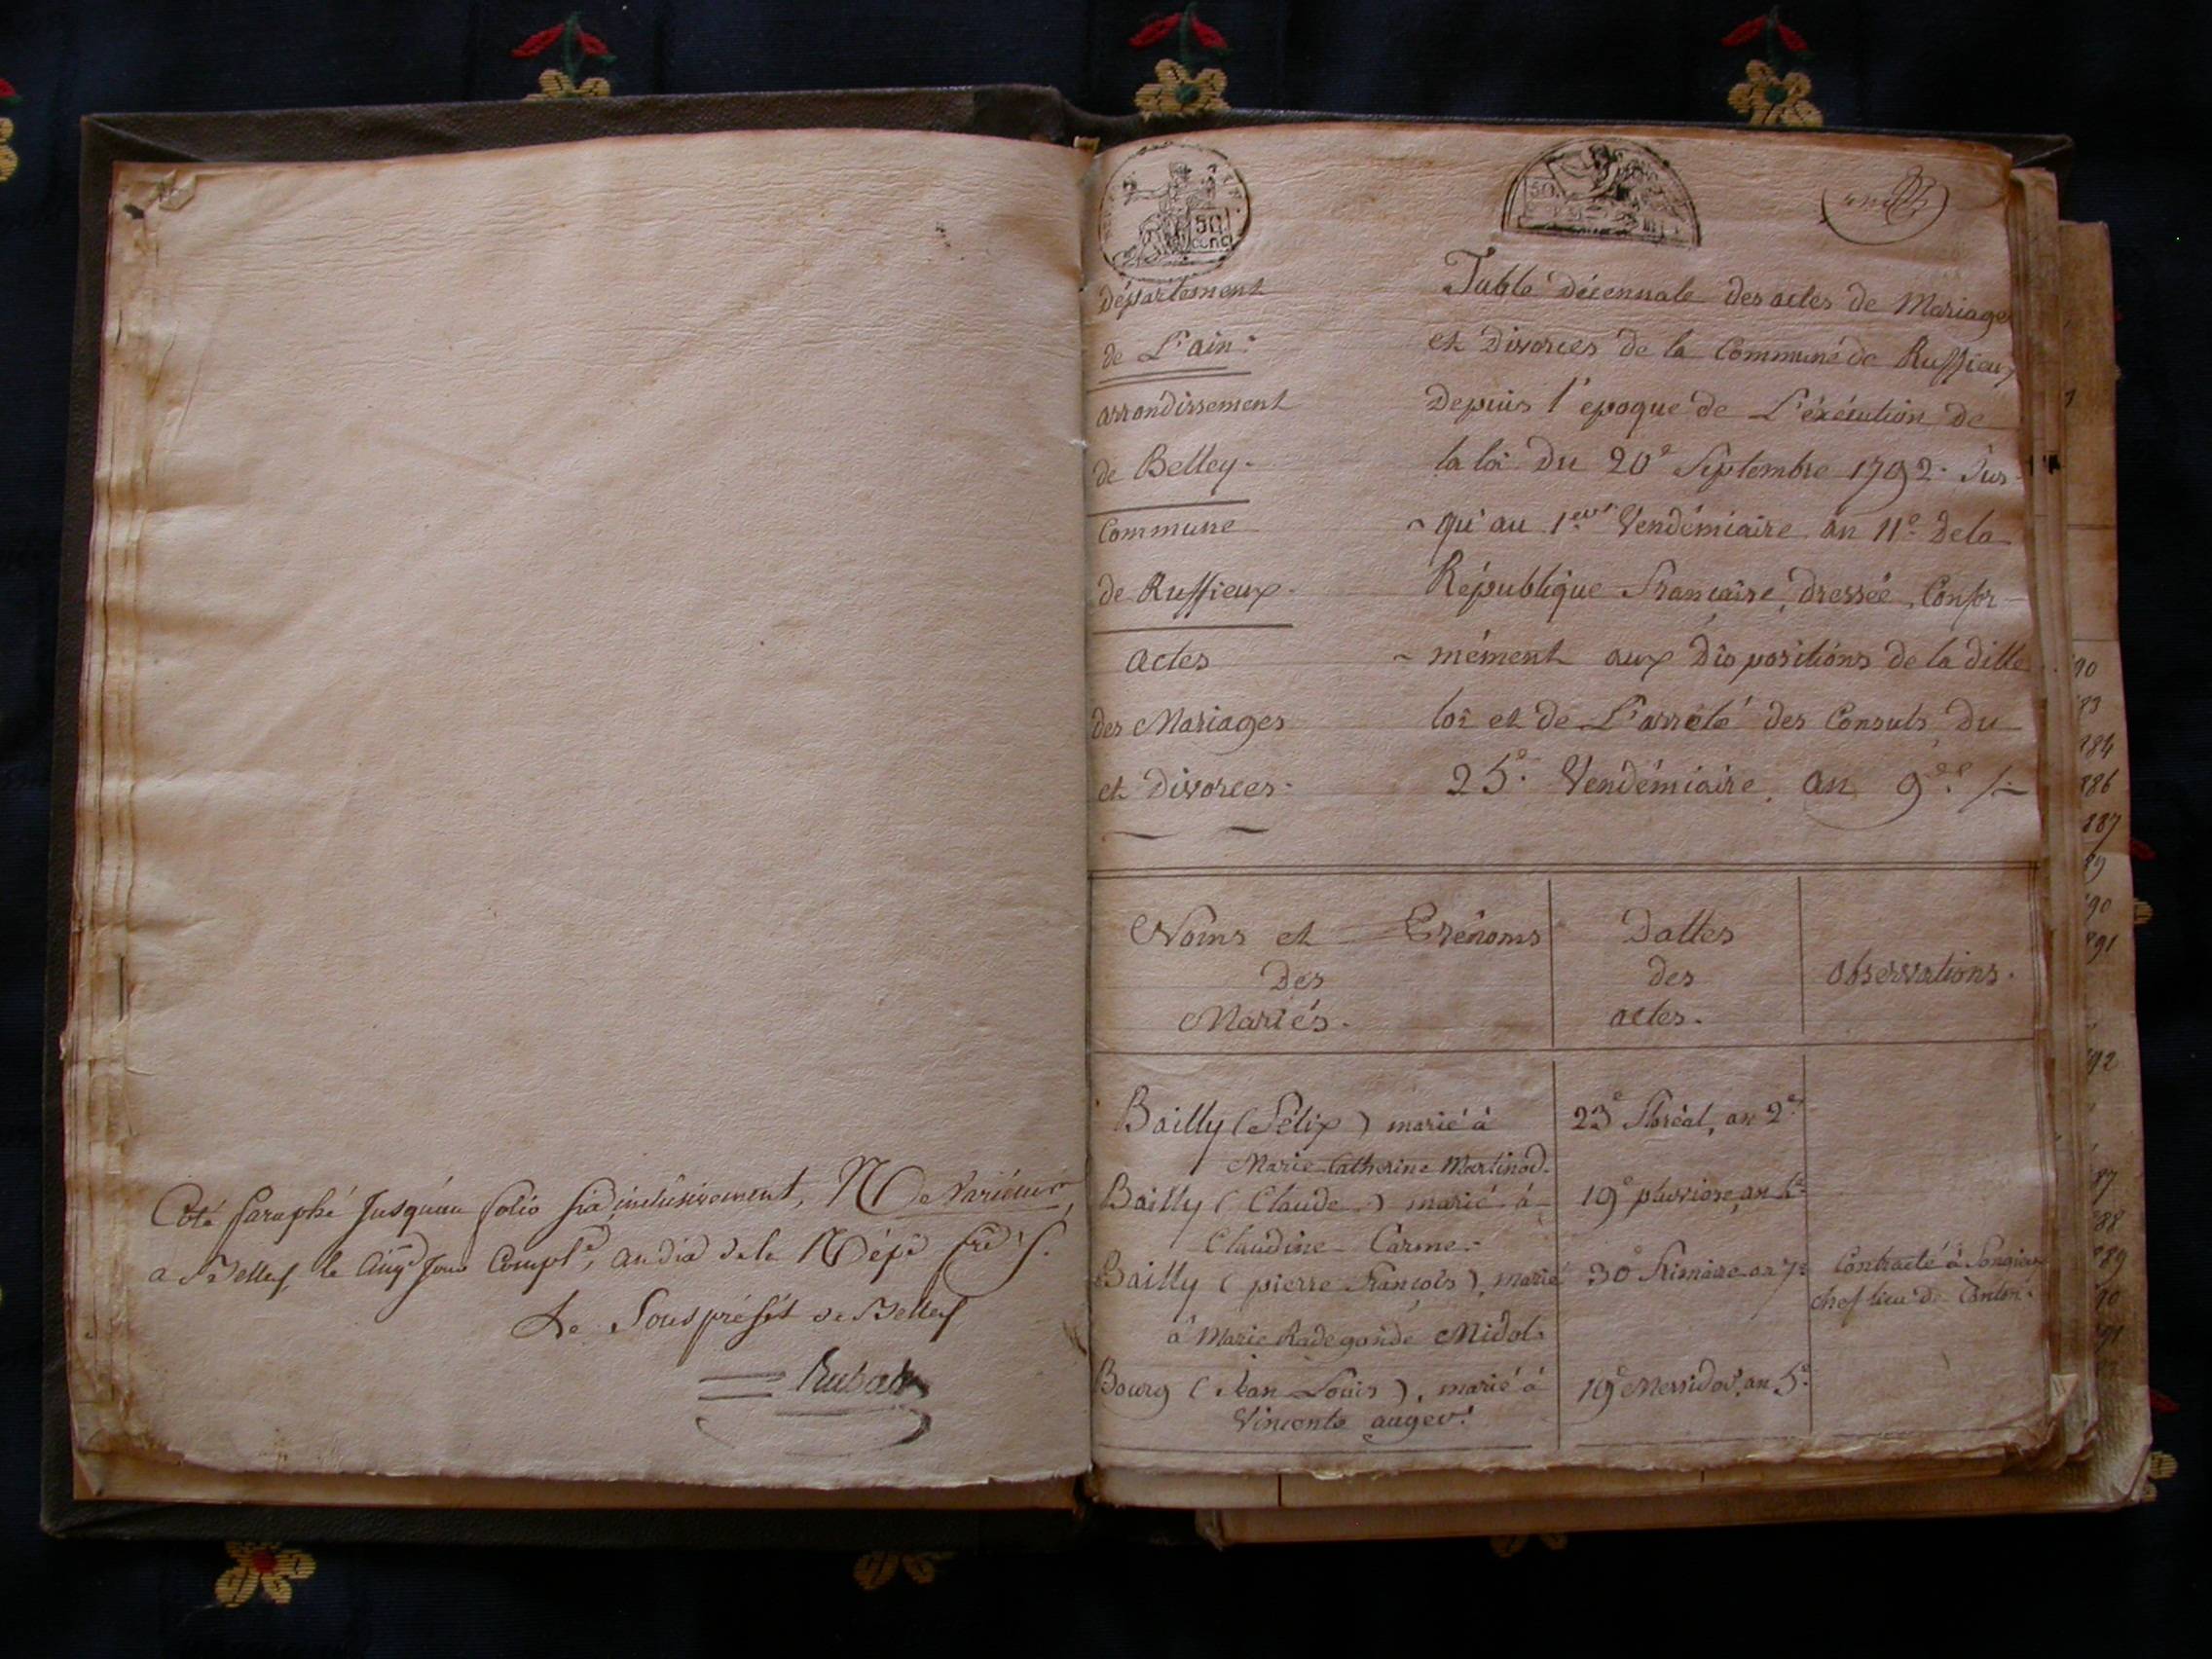 Coté paraphé Jusqu'au folio six inclusivement,
a Belley le cinq Jour Compl.re, an dix de la Rép.
Le Sous préfet de Belley
Rubat
50
cent
50
Département
de L'ain.
arrondissement
de Belley.
Commune
de Ruffieux.
Actes
des Mariages
et Divorces.
Table décennale des actes de Mariages
et Divorces de la Commune de Ruffieux
Depuis l'epoque de L'éxécution de
la loi du 20e Septembre 1792. Jus-
- qu'au 1er Vendémiaire an 11e. De la
République Francaise, dressée, Confor-
- mément aux Dispositions de la ditte
loi et de L'arrêté des Consuls, du
25e. Vendémiaire, an 9e. /.
Noms et Prénoms
Des
Mariés.
Dattes
des
actes.
observations.
Bailly (Félix) marié à
Marie Catherine Martinod.
23e Floréal, an 2e
Bailly (Claude) marié à
Claudine Carme.
19e pluviose, an
Bailly (pierre François), marié
à Marie Radegonde Midol.
30e Frimaire an 7e
Contracté à Songieu
chef lieu de Canton.
Bourg (Jean Louis), marié à
Vincente auger.
19e Messidor, an 5e.
90
83
184
186
187
89
90
191
92
87
88
189
90
91